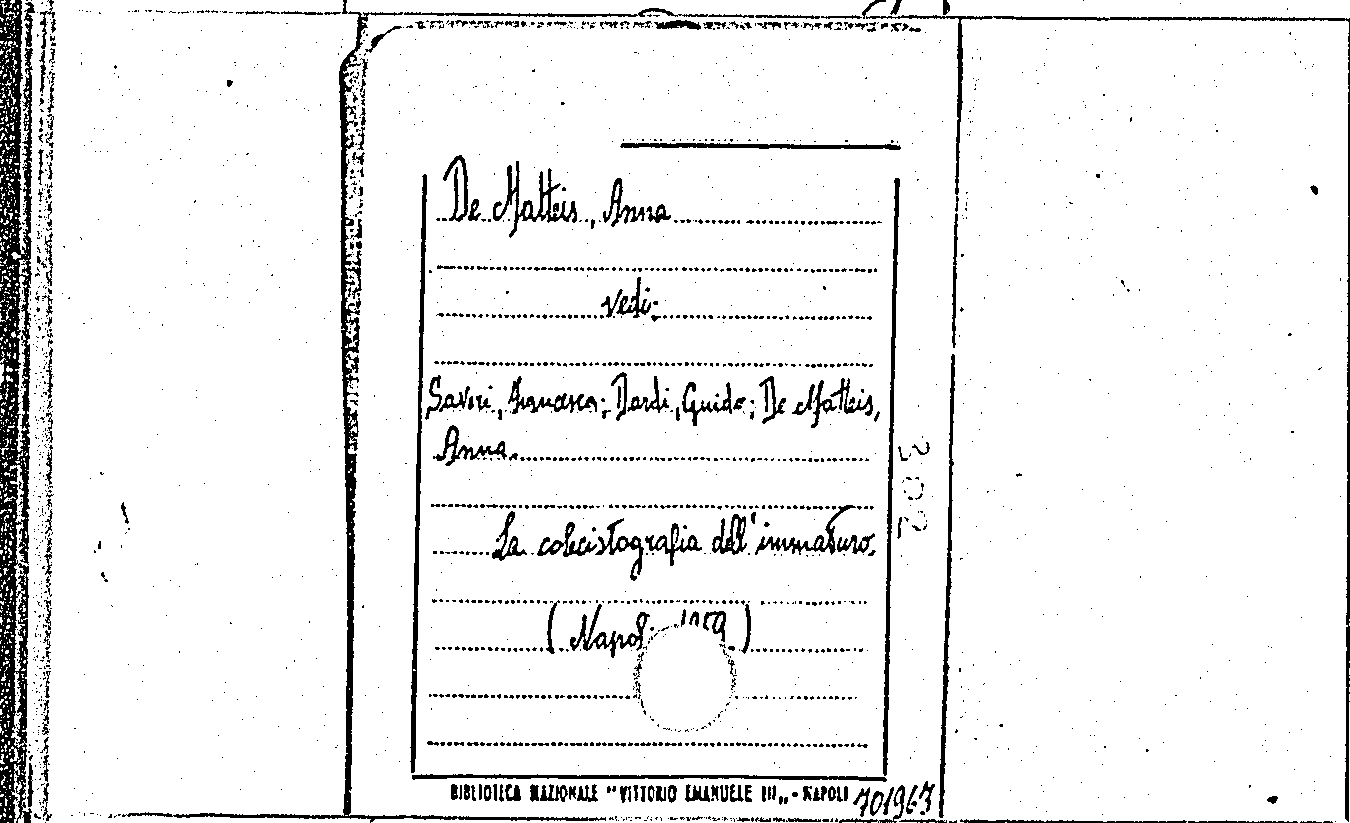 De Matteis, Anna
vedi:
Savori, Francesca; Dardi, Guido; De Matteis,
Anna.
La colecistografia dell'immaturo.
( Napoli 1959 )
302
BIBLIOTECA NAZIONALE "VITTORIO EMANUELE III„ - NAPOLI
701967